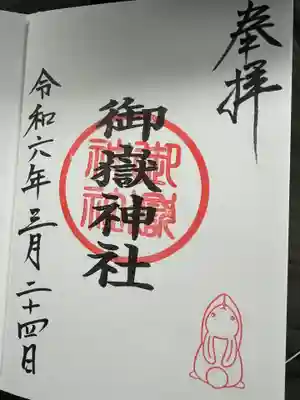 奉拝
御嶽神社
御嶽神社
令和六年三月二十四日